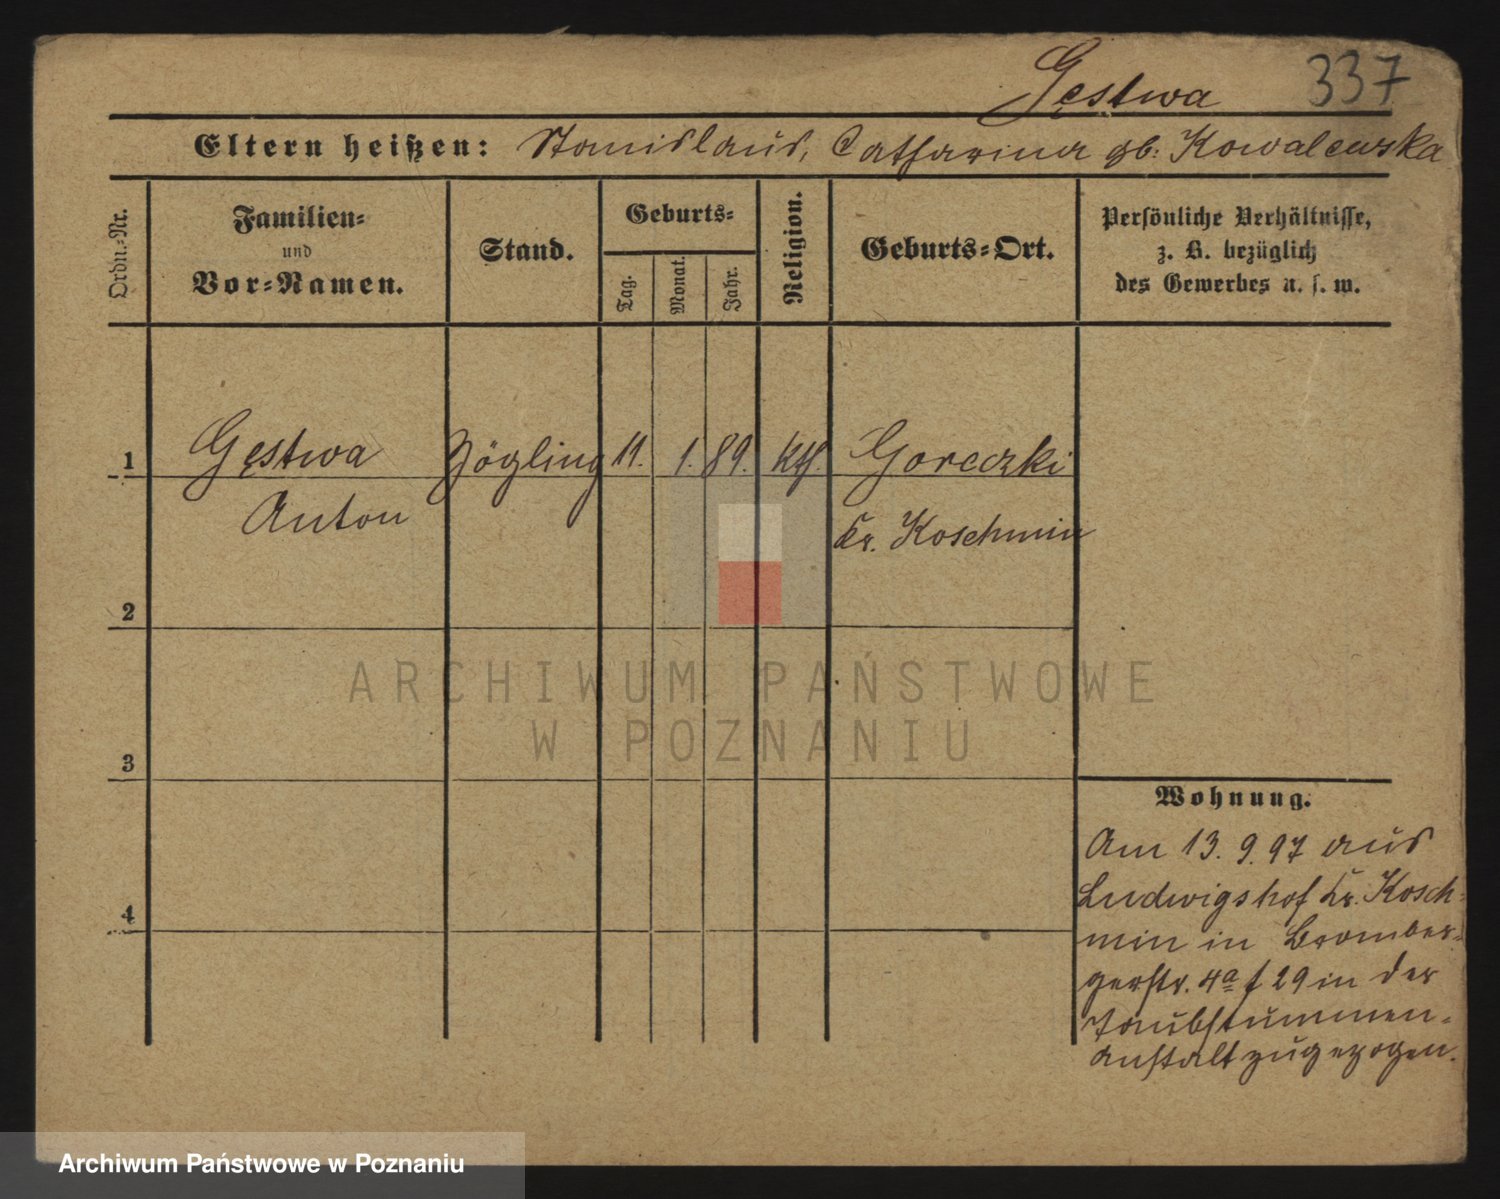 Gęstwa 337
Eltern heißen: Stanislaus, Catharina gb: Kowalewska
Ordn.-Nr.
Familien-
und
Vor-Namen.
Stand.
Geburts-
Tag.
Monat.
Jahr.
Religion.
Geburts-Ort.
Persönliche Verhältnisse,
z. B. bezüglich
des Gewerbes u. s. w.
1 Gęstwa Zögling 11. 1. 89. kth. Goreczki
Anton Kr. Koschmin
2
3
4
Wohnung.
Am 13. 9. 97 aus
Ludwigshof Kr. Kosch-
min in Bromber-
gerstr. 4a 29 in der
Taubstummen-
anstalt zugezogen.
ARCHIWUM PAŃSTWOWE
W POZNANIU
Archiwum Państwowe w Poznaniu